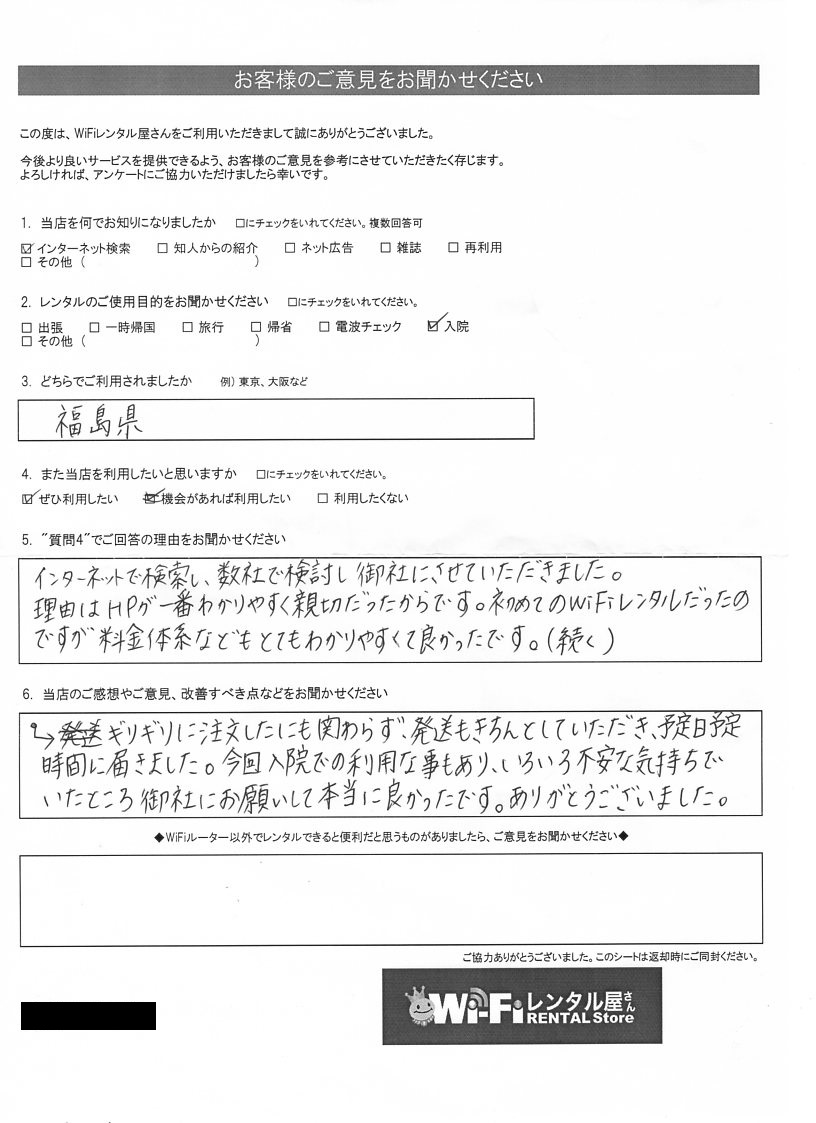 お客様のご意見をお聞かせください
この度は、WiFiレンタル屋さんをご利用いただきまして誠にありがとうございました。
今後より良いサービスを提供できるよう、お客様のご意見を参考にさせていただきたく存じます。
よろしければ、アンケートにご協力いただけましたら幸いです。
1. 当店を何でお知りになりましたか □にチェックをいれてください。複数回答可
☑ インターネット検索 □ 知人からの紹介 □ ネット広告 □ 雑誌 □ 再利用
□ その他 ( )
2. レンタルのご使用目的をお聞かせください □にチェックをいれてください。
□ 出張 □ 一時帰国 □ 旅行 □ 帰省 □ 電波チェック ☑ 入院
□ その他 ( )
3. どちらでご利用されましたか 例) 東京、大阪など
福島県
4. また当店を利用したいと思いますか □にチェックをいれてください。
☑ ぜひ利用したい ☑ 機会があれば利用したい □ 利用したくない
5. "質問4"でご回答の理由をお聞かせください
インターネットで検索し、数社で検討し御社にさせていただきました。
理由はHPが一番わかりやすく親切だったからです。初めてのWiFiレンタルだったの
ですが料金体系などもとてもわかりやすくて良かったです。(続く)
6. 当店のご感想やご意見、改善すべき点などをお聞かせください
→発送ギリギリに注文したにも関わらず、発送もきちんとしていただき、予定日予定
時間に届きました。今回入院での利用な事もあり、いろいろ不安な気持ちで
いたところ御社にお願いして本当に良かったです。ありがとうございました。
◆WiFiルーター以外でレンタルできると便利だと思うものがありましたら、ご意見をお聞かせください◆
ご協力ありがとうございました。このシートは返却時にご同封ください。
Wi-Fiレンタル屋さん
RENTAL Store